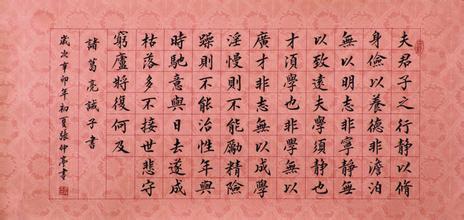 夫君子之行靜以脩
身儉以養德非澹泊
無以明志非寧靜無
以致遠夫學須靜也
才須學也非學無以
廣才非志無以成學
淫慢則不能勵精險
躁則不能治性年與
時馳意與日去遂成
枯落多不接世悲守
窮廬將復何及
諸葛亮誡子書
歲次辛卯年初夏張仲亭書